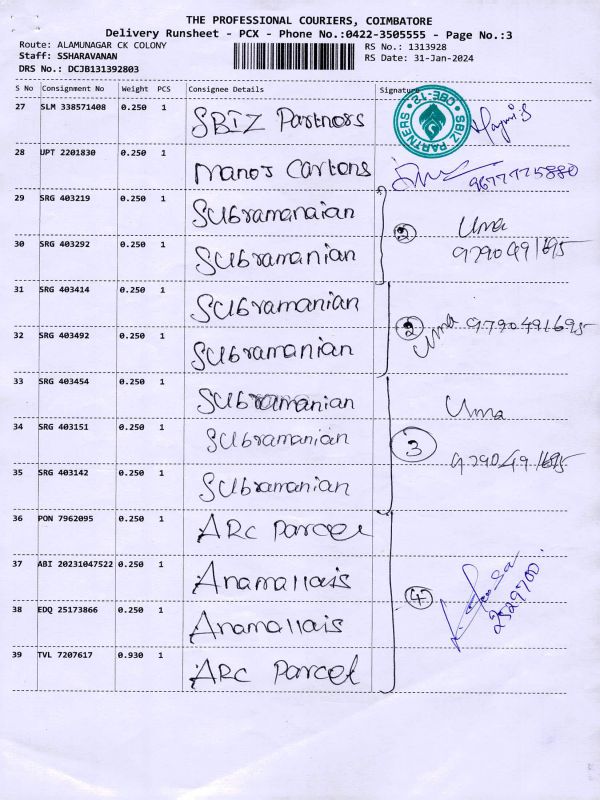 THE PROFESSIONAL COURIERS, COIMBATORE
Delivery Runsheet - PCX - Phone No.:0422-3505555 - Page No.:3
Route: ALAMUNAGAR CK COLONY
RS No.: 1313928
Staff: SSHARAVANAN
RS Date: 31-Jan-2024
DRS No.: DCJB131392803
S No Consignment No Weight PCS Consignee Details Signature
27 SLM 338571408 0.250 1 SBIZ Partnors
SBIZ PARTNERS CBE-12
28 UPT 2201830 0.250 1 Manoj Cartons 9677775880
29 SRG 403219 0.250 1 Subramanaian 2 Uma
9790491695
30 SRG 403292 0.250 1 Subramanian
31 SRG 403414 0.250 1 Subramanian
2 Uma 9790491695
32 SRG 403492 0.250 1 Subramanian
33 SRG 403454 0.250 1 Subramanian Uma
34 SRG 403151 0.250 1 Subramanian 3
9790491695
35 SRG 403142 0.250 1 Subramanian
36 PON 7962095 0.250 1 ARC Parcel
37 ABI 20231047522 0.250 1 Anamallais 4
2529700
38 EDQ 25173866 0.250 1 Anamallais
39 TVL 7207617 0.930 1 ARC Parcel